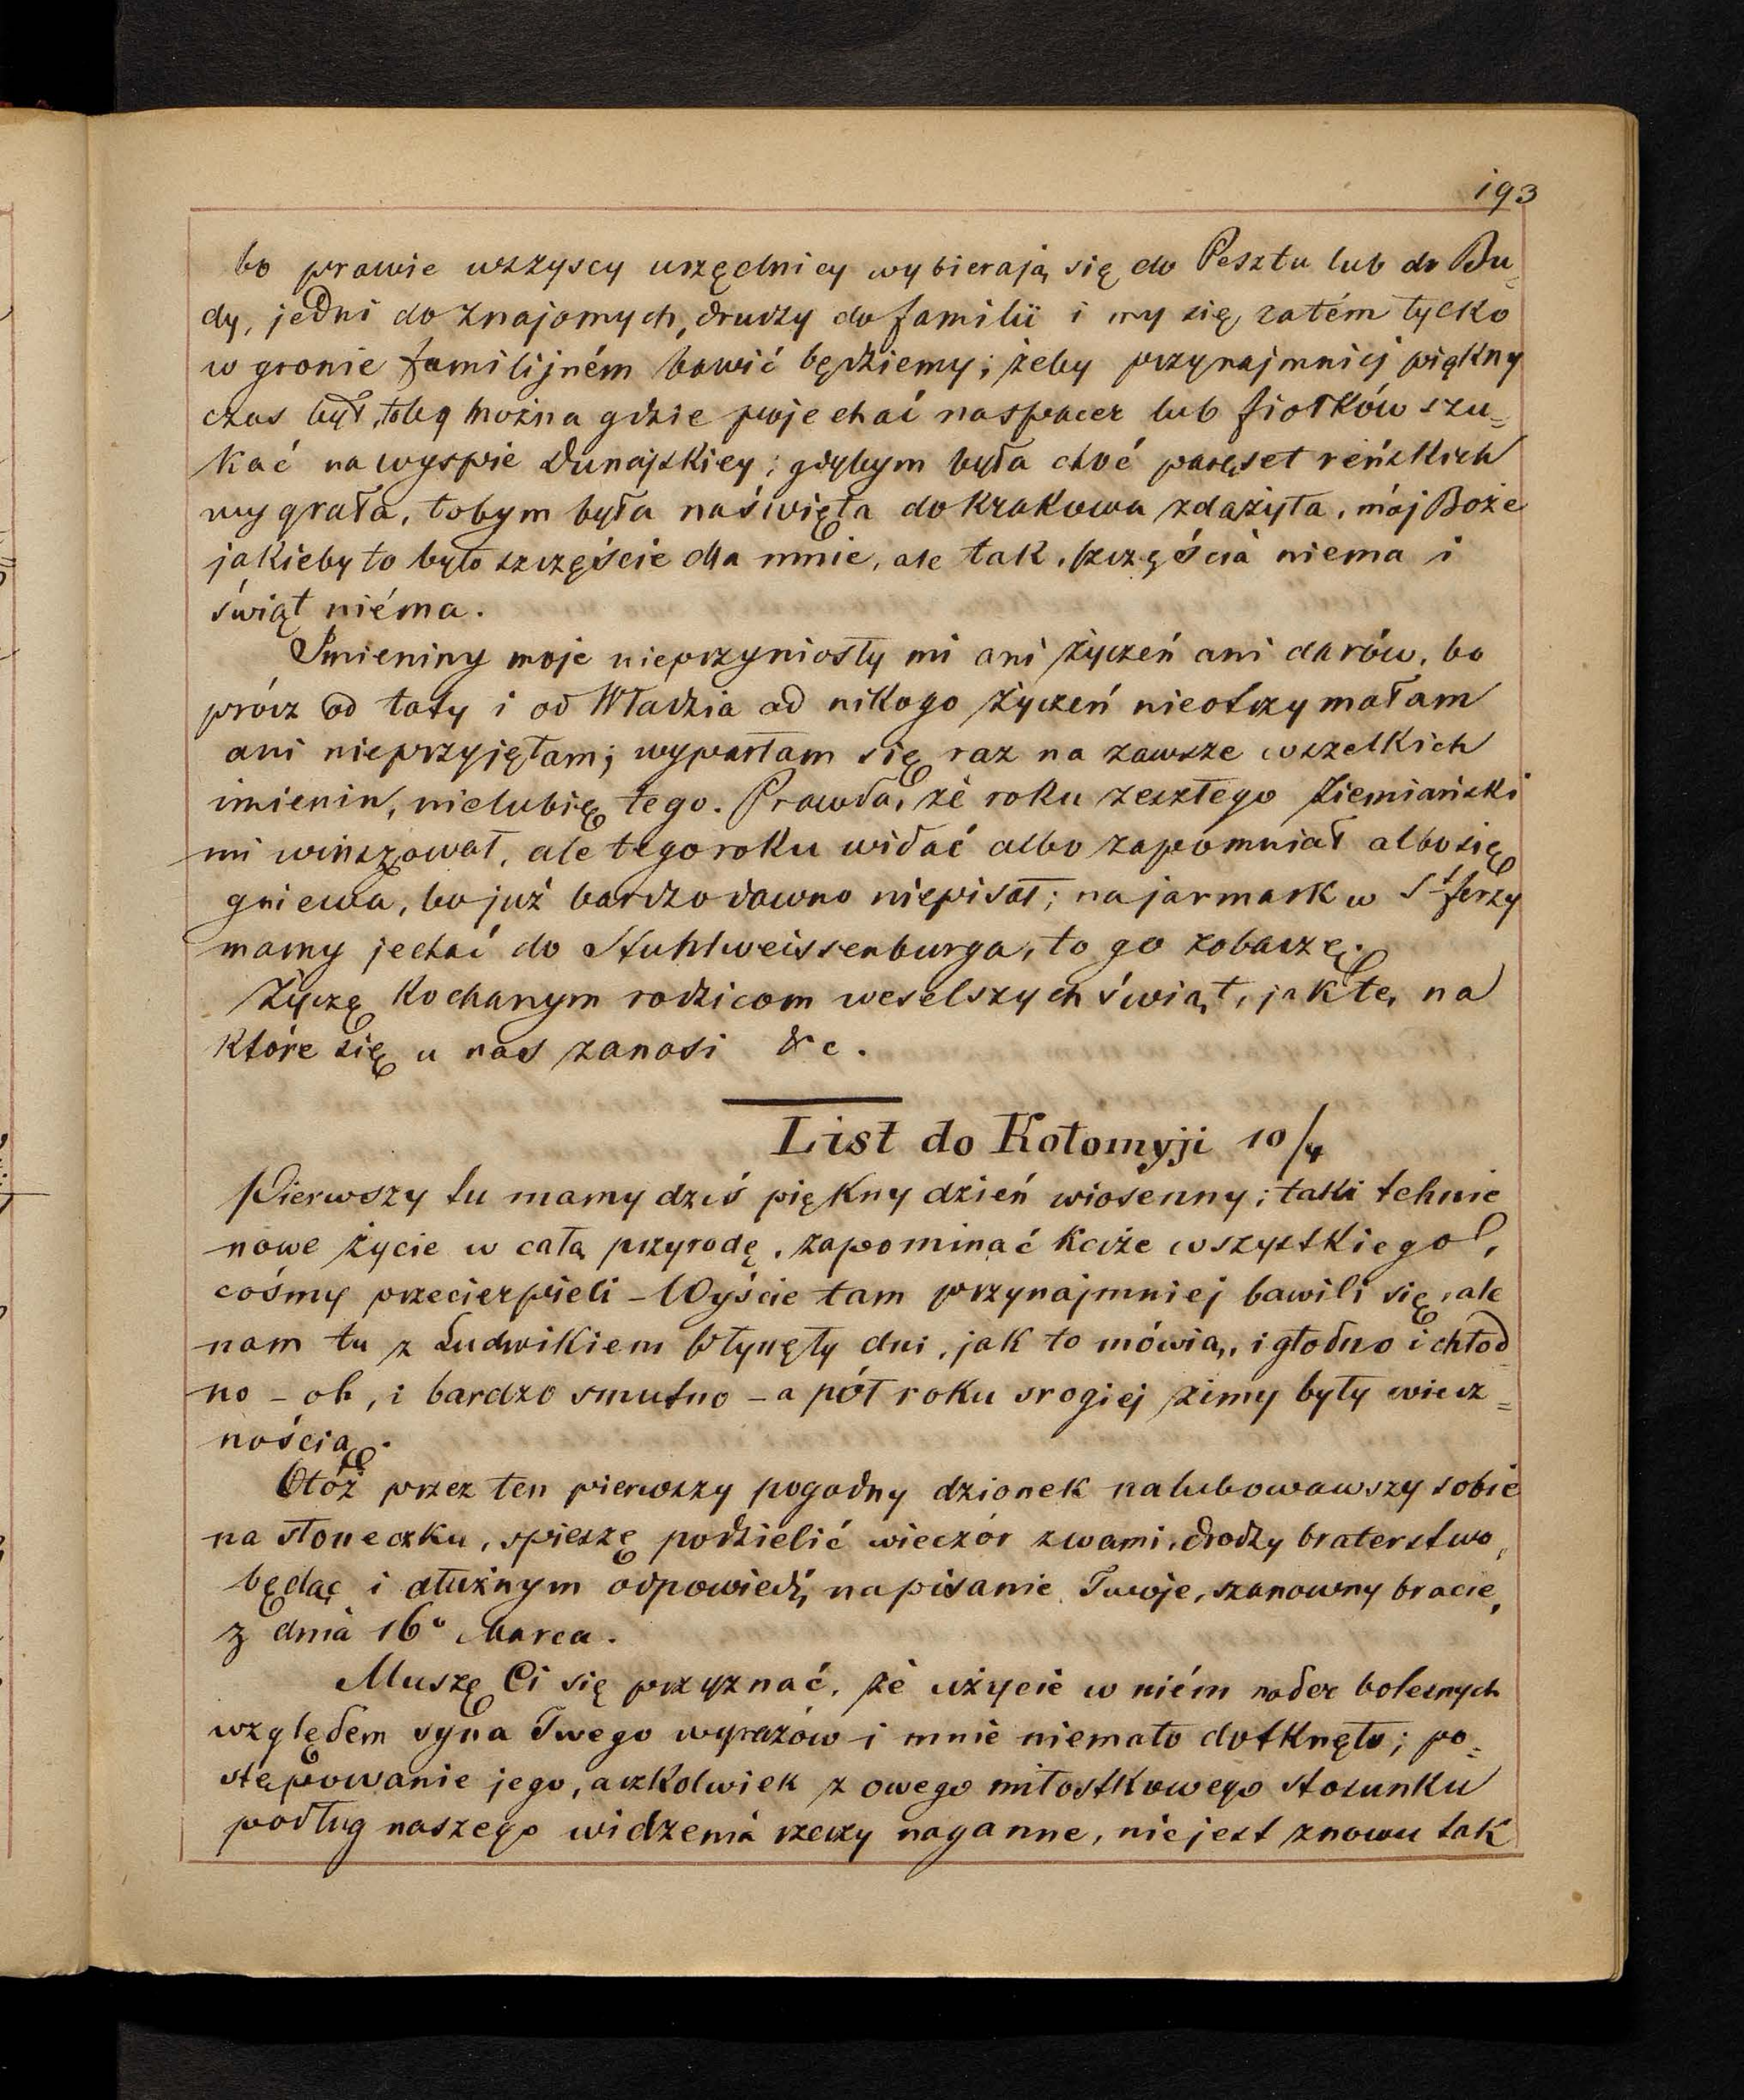 193
bo prawie wszyscy urzędnicy wybierają się do Pesztu lub do Bu=
dy, jedni do znajomych, drudzy do familii i my się zatém tylko
w gronie familijném bawić będziemy; żeby przynajmniej piękny
czas był, toby można gdzie pojechać na spacer lub fiołków szu=
kać na wyspie Dunajskiey; gdybym była choć paręset reńskich
wygrała, tobym była na święta do Krakowa zdążyła, mój Boże
jakieby to było szczęście dla mnie, ale tak, szczęścia niema i
świąt niéma.
Imieniny moje nieprzyniosły mi ani życzeń ani darów, bo
prócz od taty i od Władzia od nikogo życzeń nieotrzymałam
ani nieprzyjęłam; wyparłam się raz na zawsze wszelkich
imienin, nielubię tego. Prawda, że roku zeszłego Ziemiański
mi winszował, ale tego roku widać albo zapomniał albo się
gniewa, bo już bardzo dawno niepisał; na jarmark w St Jerzy
mamy jechać do Stuhlweissenburga, to go zobaczę.
Życzę kochanym rodzicom weselszych świąt, jak te, na
które się u nas zanosi &c.
List do Kołomyji 10/4
Pierwszy tu mamy dziś piękny dzień wiosenny; taki tchnie
nowe życie w całą przyrodę, zapominać każe wszystkiego,
cośmy przecierpieli - Wyście tam przynajmniej bawili się, ale
nam tu z Ludwikiem płynęły dni, jak to mówią, i głodno i chłod
no - oh, i bardzo smutno - a pół roku srogiej zimy były wiecz=
nością.
Otóż przez ten pierwszy pogodny dzionek nalubowawszy sobie
na słoneczku, spieszę podzielić wieczór z wami, drodzy braterstwo,
będąc i dłużnym odpowiedź, na pisanie Twoje, szanowny bracie,
z dnia 16º Marca.
Muszę Ci się przyznać, że użycie w niém nader bolesnych
względem syna Twego wyrazów i mnie niemało dotknęło; po=
stępowanie jego, aczkolwiek z owego miłostkowego stosunku
podług naszego widzenia rzeczy naganne, nie jest znowu tak